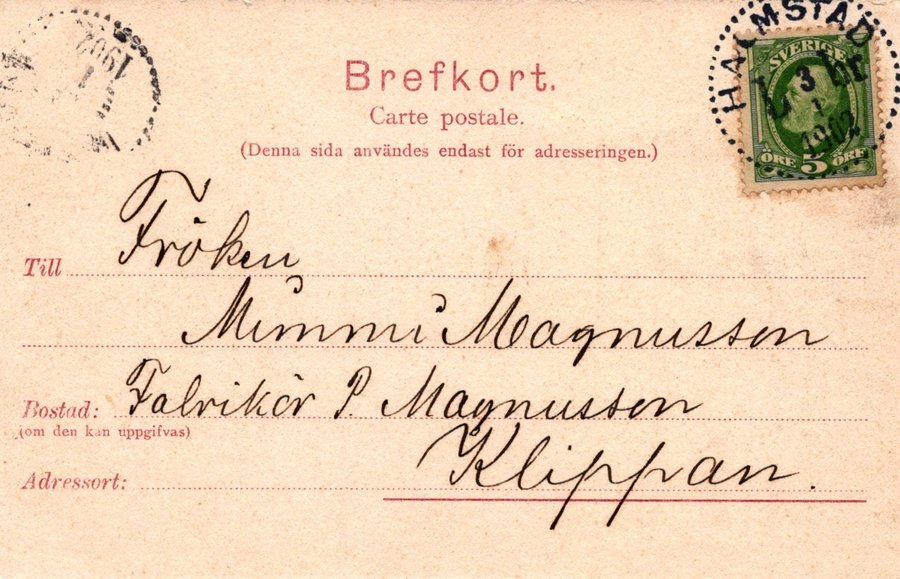 1902
HALMSTAD
SVERIGE
3
1
1902
ÖRE 5 ÖRE
Brefkort.
Carte postale.
(Denna sida användes endast för adresseringen.)
Till Fröken
Mimmi Magnusson
Bostad: Fabrikör P. Magnusson
(om den kan uppgifvas)
Klippan.
Adressort: